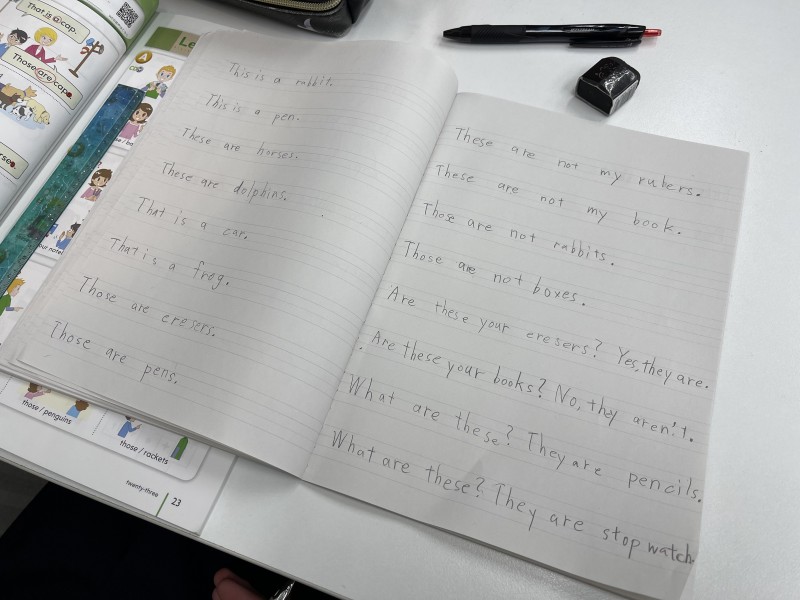 That is a cap.
Those are caps.
Le
A
This is a rabbit.
This is a pen.
These are horses.
These are dolphins.
That is a car.
That is a frog.
Those are eresers.
Those are pens.
These are not my rulers.
These are not my book.
Those are not rabbits.
Those are not boxes.
Are these your eresers? Yes, they are.
Are these your books? No, they aren't.
What are these? They are pencils.
What are these? They are stop watch
those / penguins
those / rackets
twenty-three 23